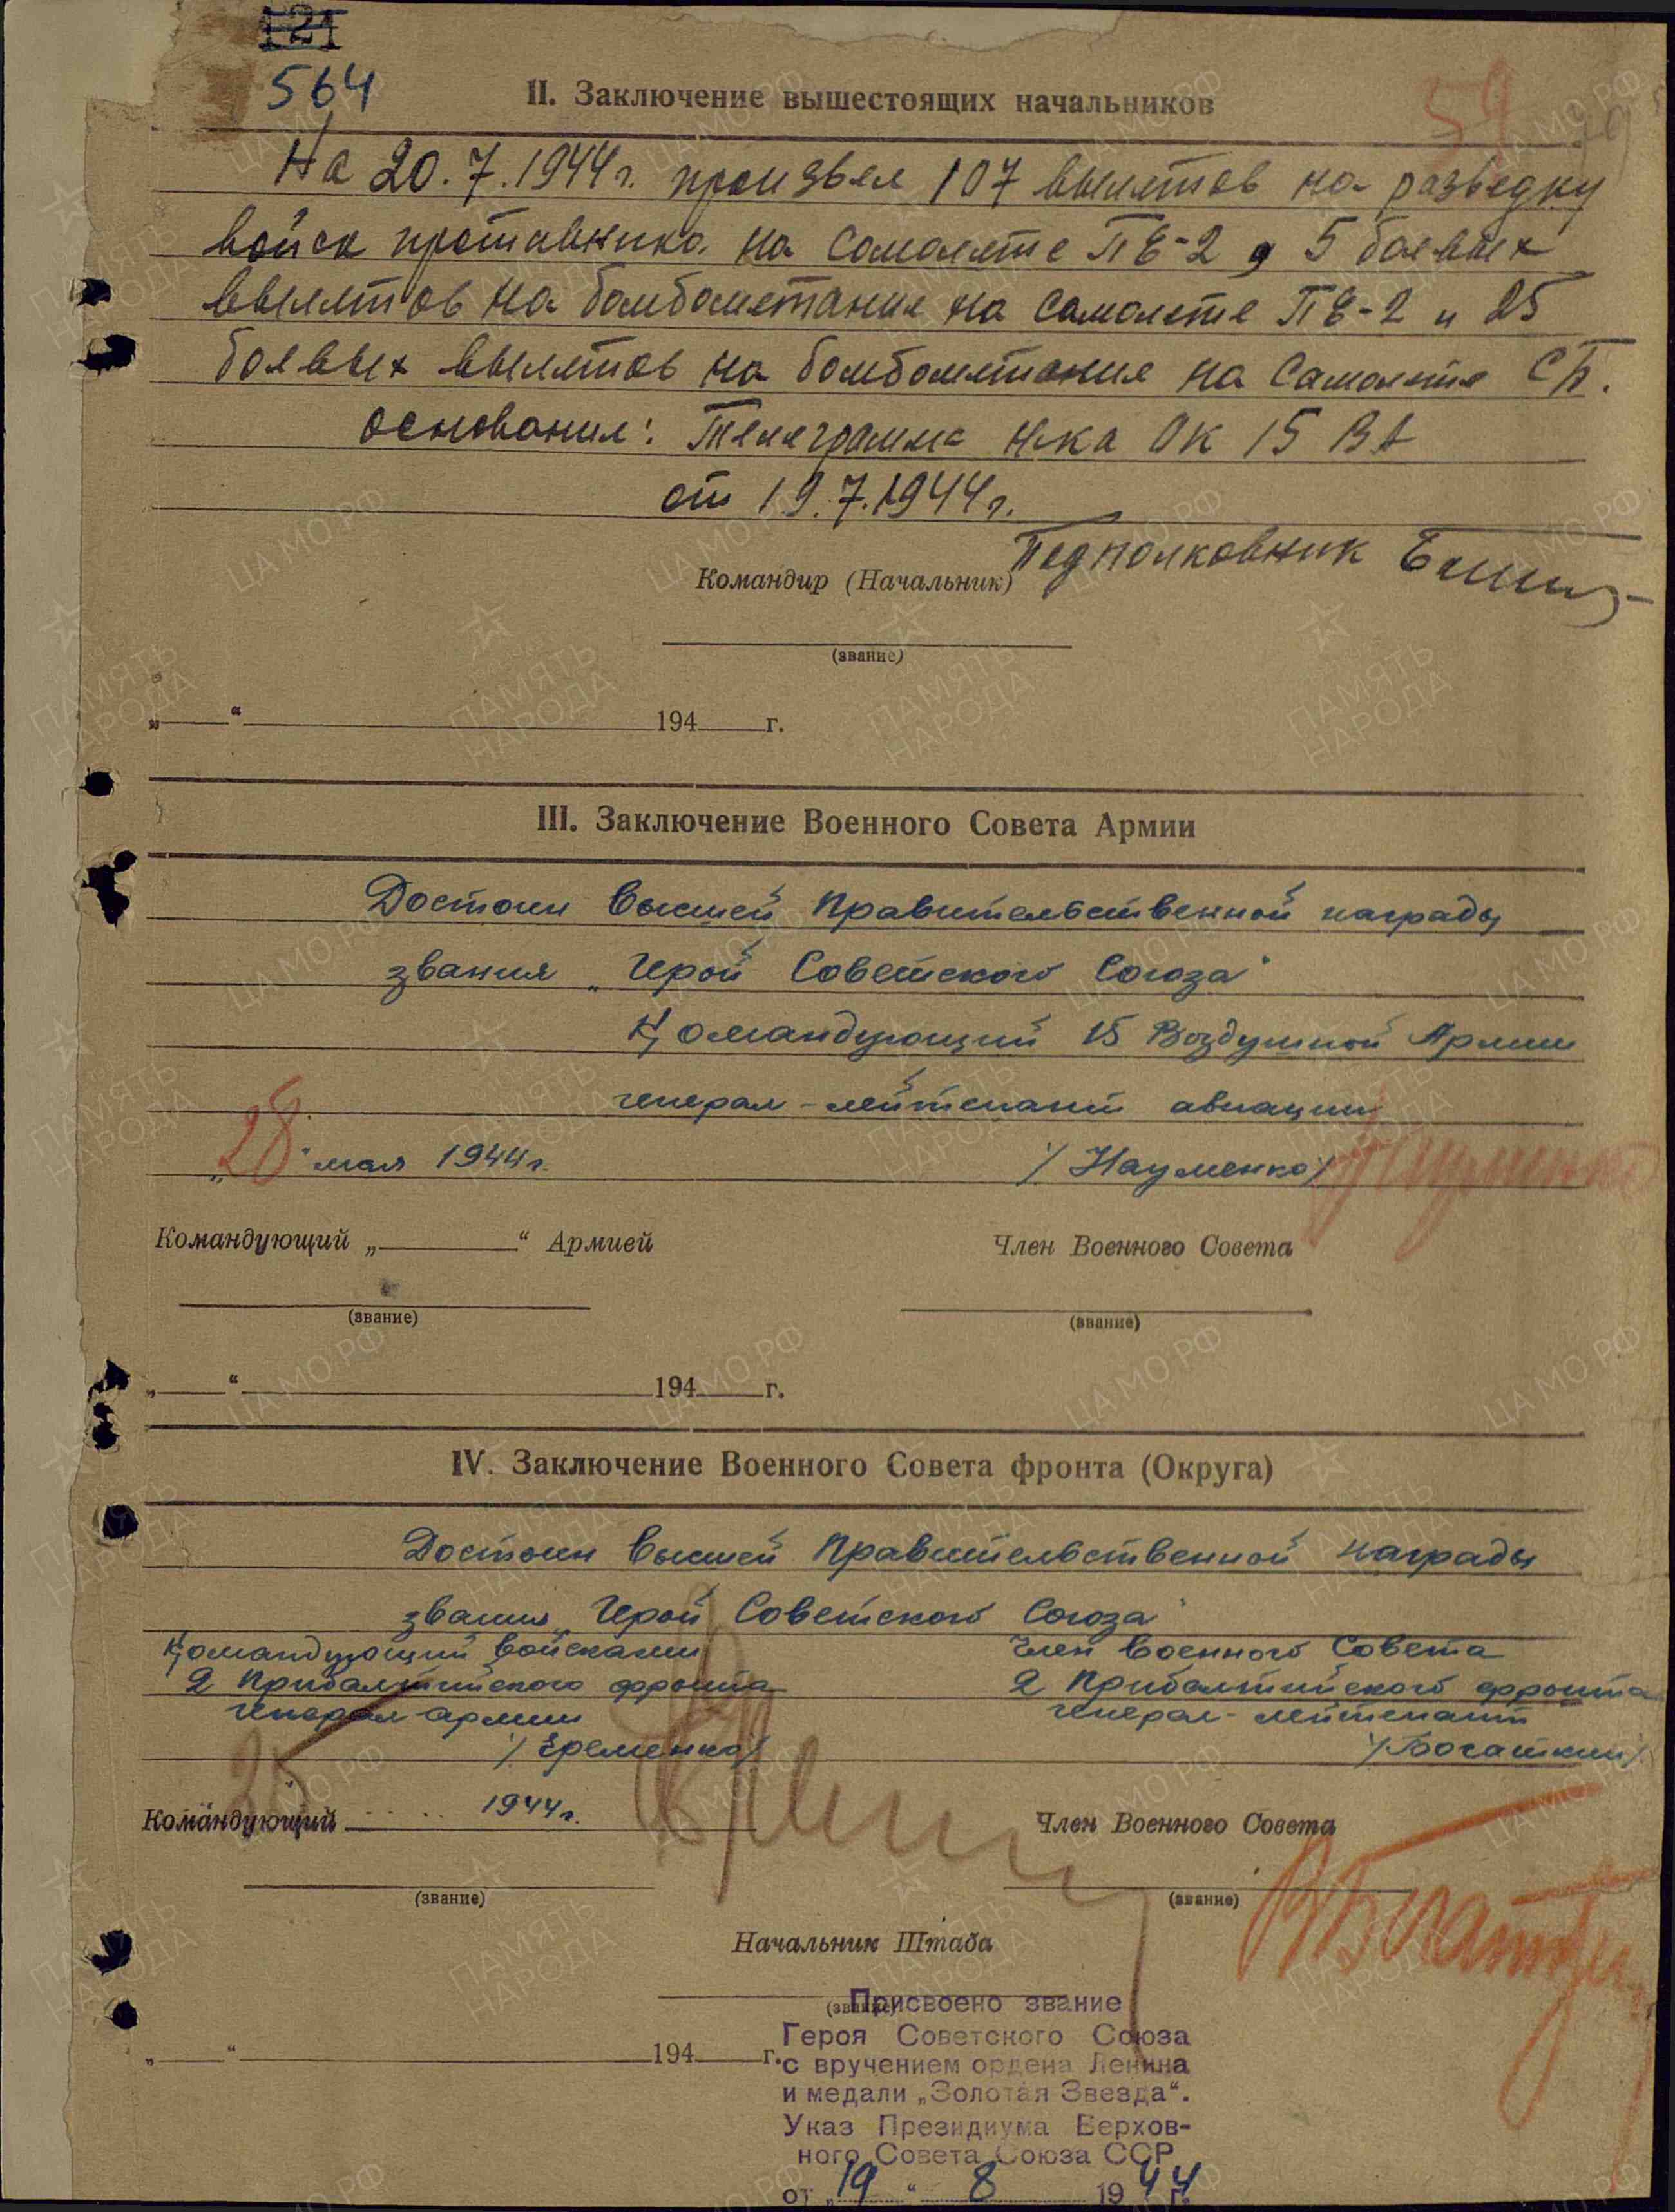 121
564
59
II. Заключение вышестоящих начальников
На 20.7.1944г. произвел 107 вылетов на разведку
войск противника на самолете ПЕ-2, 5 боевых
вылетов на бомбометание на самолете ПЕ-2 и 25
боевых вылетов на бомбометание на самолете СБ.
основание: Телеграмма Н-ка ОК 15 ВА
от 19.7.1944г.
Командир (Начальник) Подполковник
(звание)
„ “ 194 г.
III. Заключение Военного Совета Армии
Достоин высшей Правительственной награды
звания „Герой Советского Союза“
Командующий 15 Воздушной Армии
генерал-лейтенант авиации
„28“ мая 1944г. /Науменко/
Командующий „ “ Армией Член Военного Совета
(звание) (звание)
„ “ 194 г.
IV. Заключение Военного Совета фронта (Округа)
Достоин высшей Правительственной награды
звания „Герой Советского Союза“
Командующий войсками Член Военного Совета
2 Прибалтийского фронта 2 Прибалтийского фронта
генерал армии генерал-лейтенант
/Еременко/ /Богаткин/
1944г.
Командующий Член Военного Совета
(звание) (звание)
Начальник Штаба
(звание)
„ “ 194 г.
Присвоено звание
Героя Советского Союза
с вручением ордена Ленина
и медали „Золотая Звезда“.
Указ Президиума Верхов-
ного Совета Союза ССР
от „19“ 8 1944 г.
ЦА МО РФ
ПАМЯТЬ НАРОДА